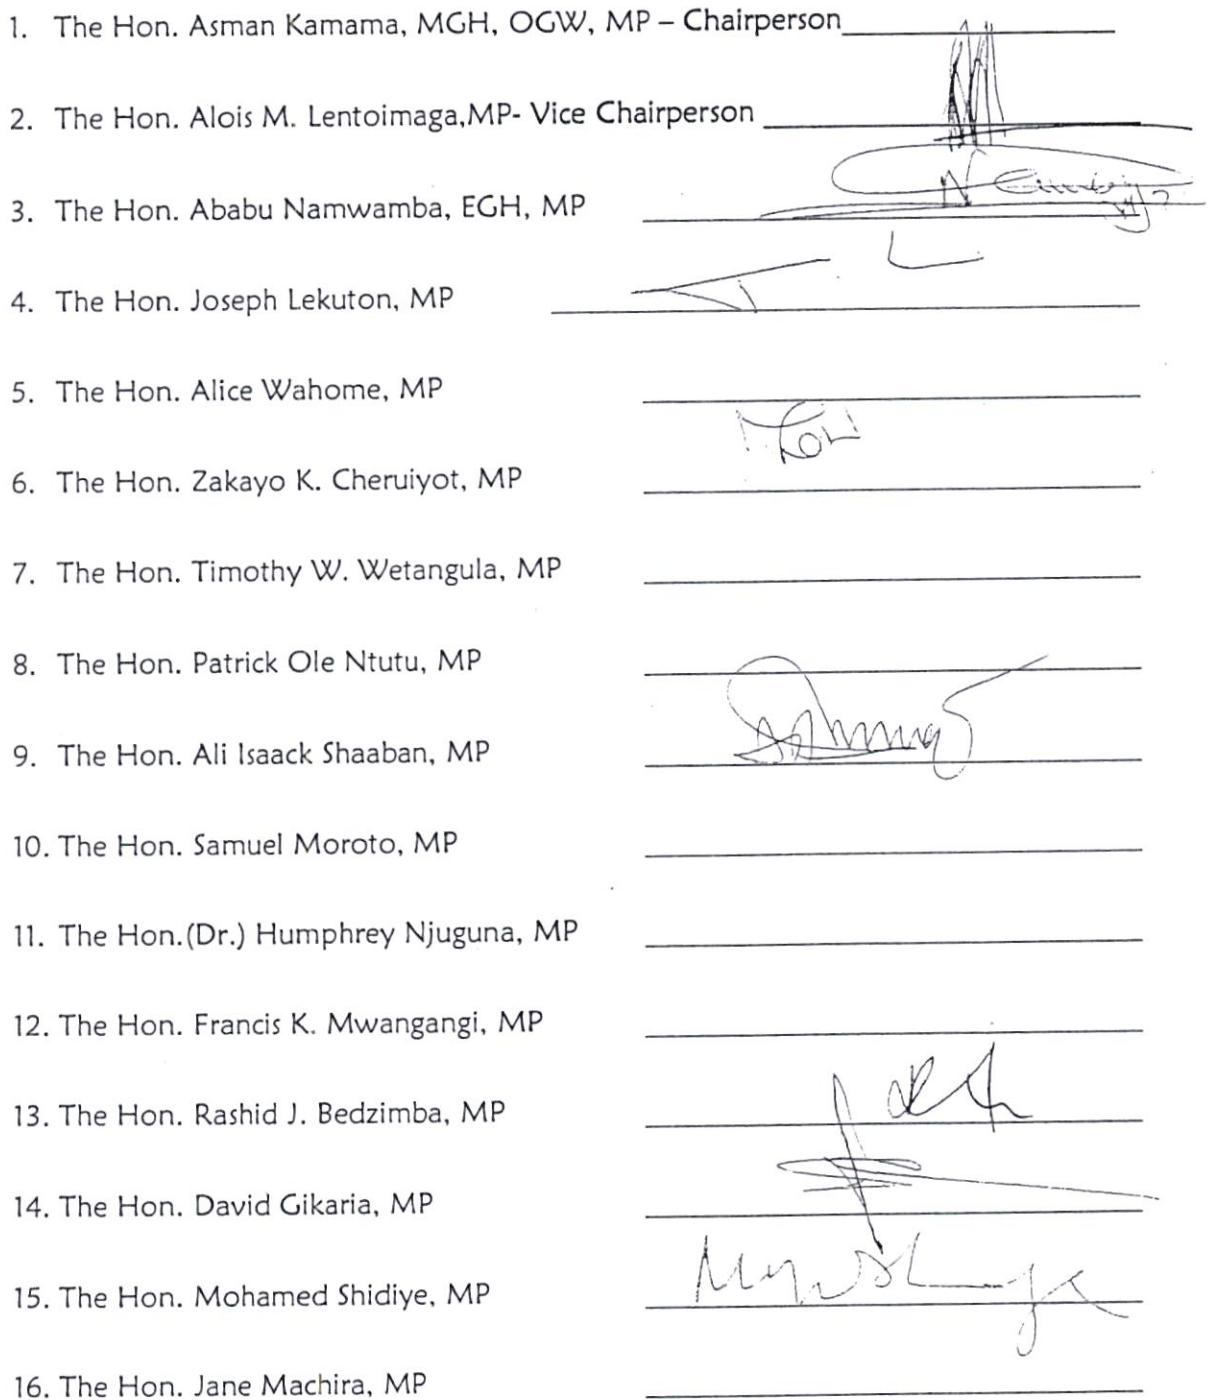 1. The Hon. Asman Kamama, MGH, OGW, MP – Chairperson
2. The Hon. Alois M. Lentoimaga,MP- Vice Chairperson
3. The Hon. Ababu Namwamba, EGH, MP
4. The Hon. Joseph Lekuton, MP
5. The Hon. Alice Wahome, MP
6. The Hon. Zakayo K. Cheruiyot, MP
7. The Hon. Timothy W. Wetangula, MP
8. The Hon. Patrick Ole Ntutu, MP
9. The Hon. Ali Isaack Shaaban, MP
10. The Hon. Samuel Moroto, MP
11. The Hon.(Dr.) Humphrey Njuguna, MP
12. The Hon. Francis K. Mwangangi, MP
13. The Hon. Rashid J. Bedzimba, MP
14. The Hon. David Gikaria, MP
15. The Hon. Mohamed Shidiye, MP
16. The Hon. Jane Machira, MP